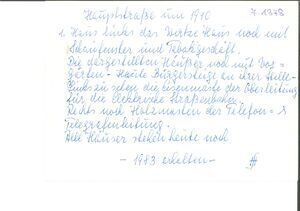 Hauptstraße um 1910
7.1373
1. Haus links das Haus noch mit
Schaufenster und Tabakgeschäft.
Die dargestellten Häußer noch mit Vor=
gärten - Heute Bürgersteige an ihrer Stelle -
Links zu sehen die Eisenmaste der Oberleitung
für die elektrische Straßenbahn.
Rechts noch Holzmasten der Telefon= &
Telegrafenleitung.
Alle Häuser stehen heute noch
- 1973 erhalten -